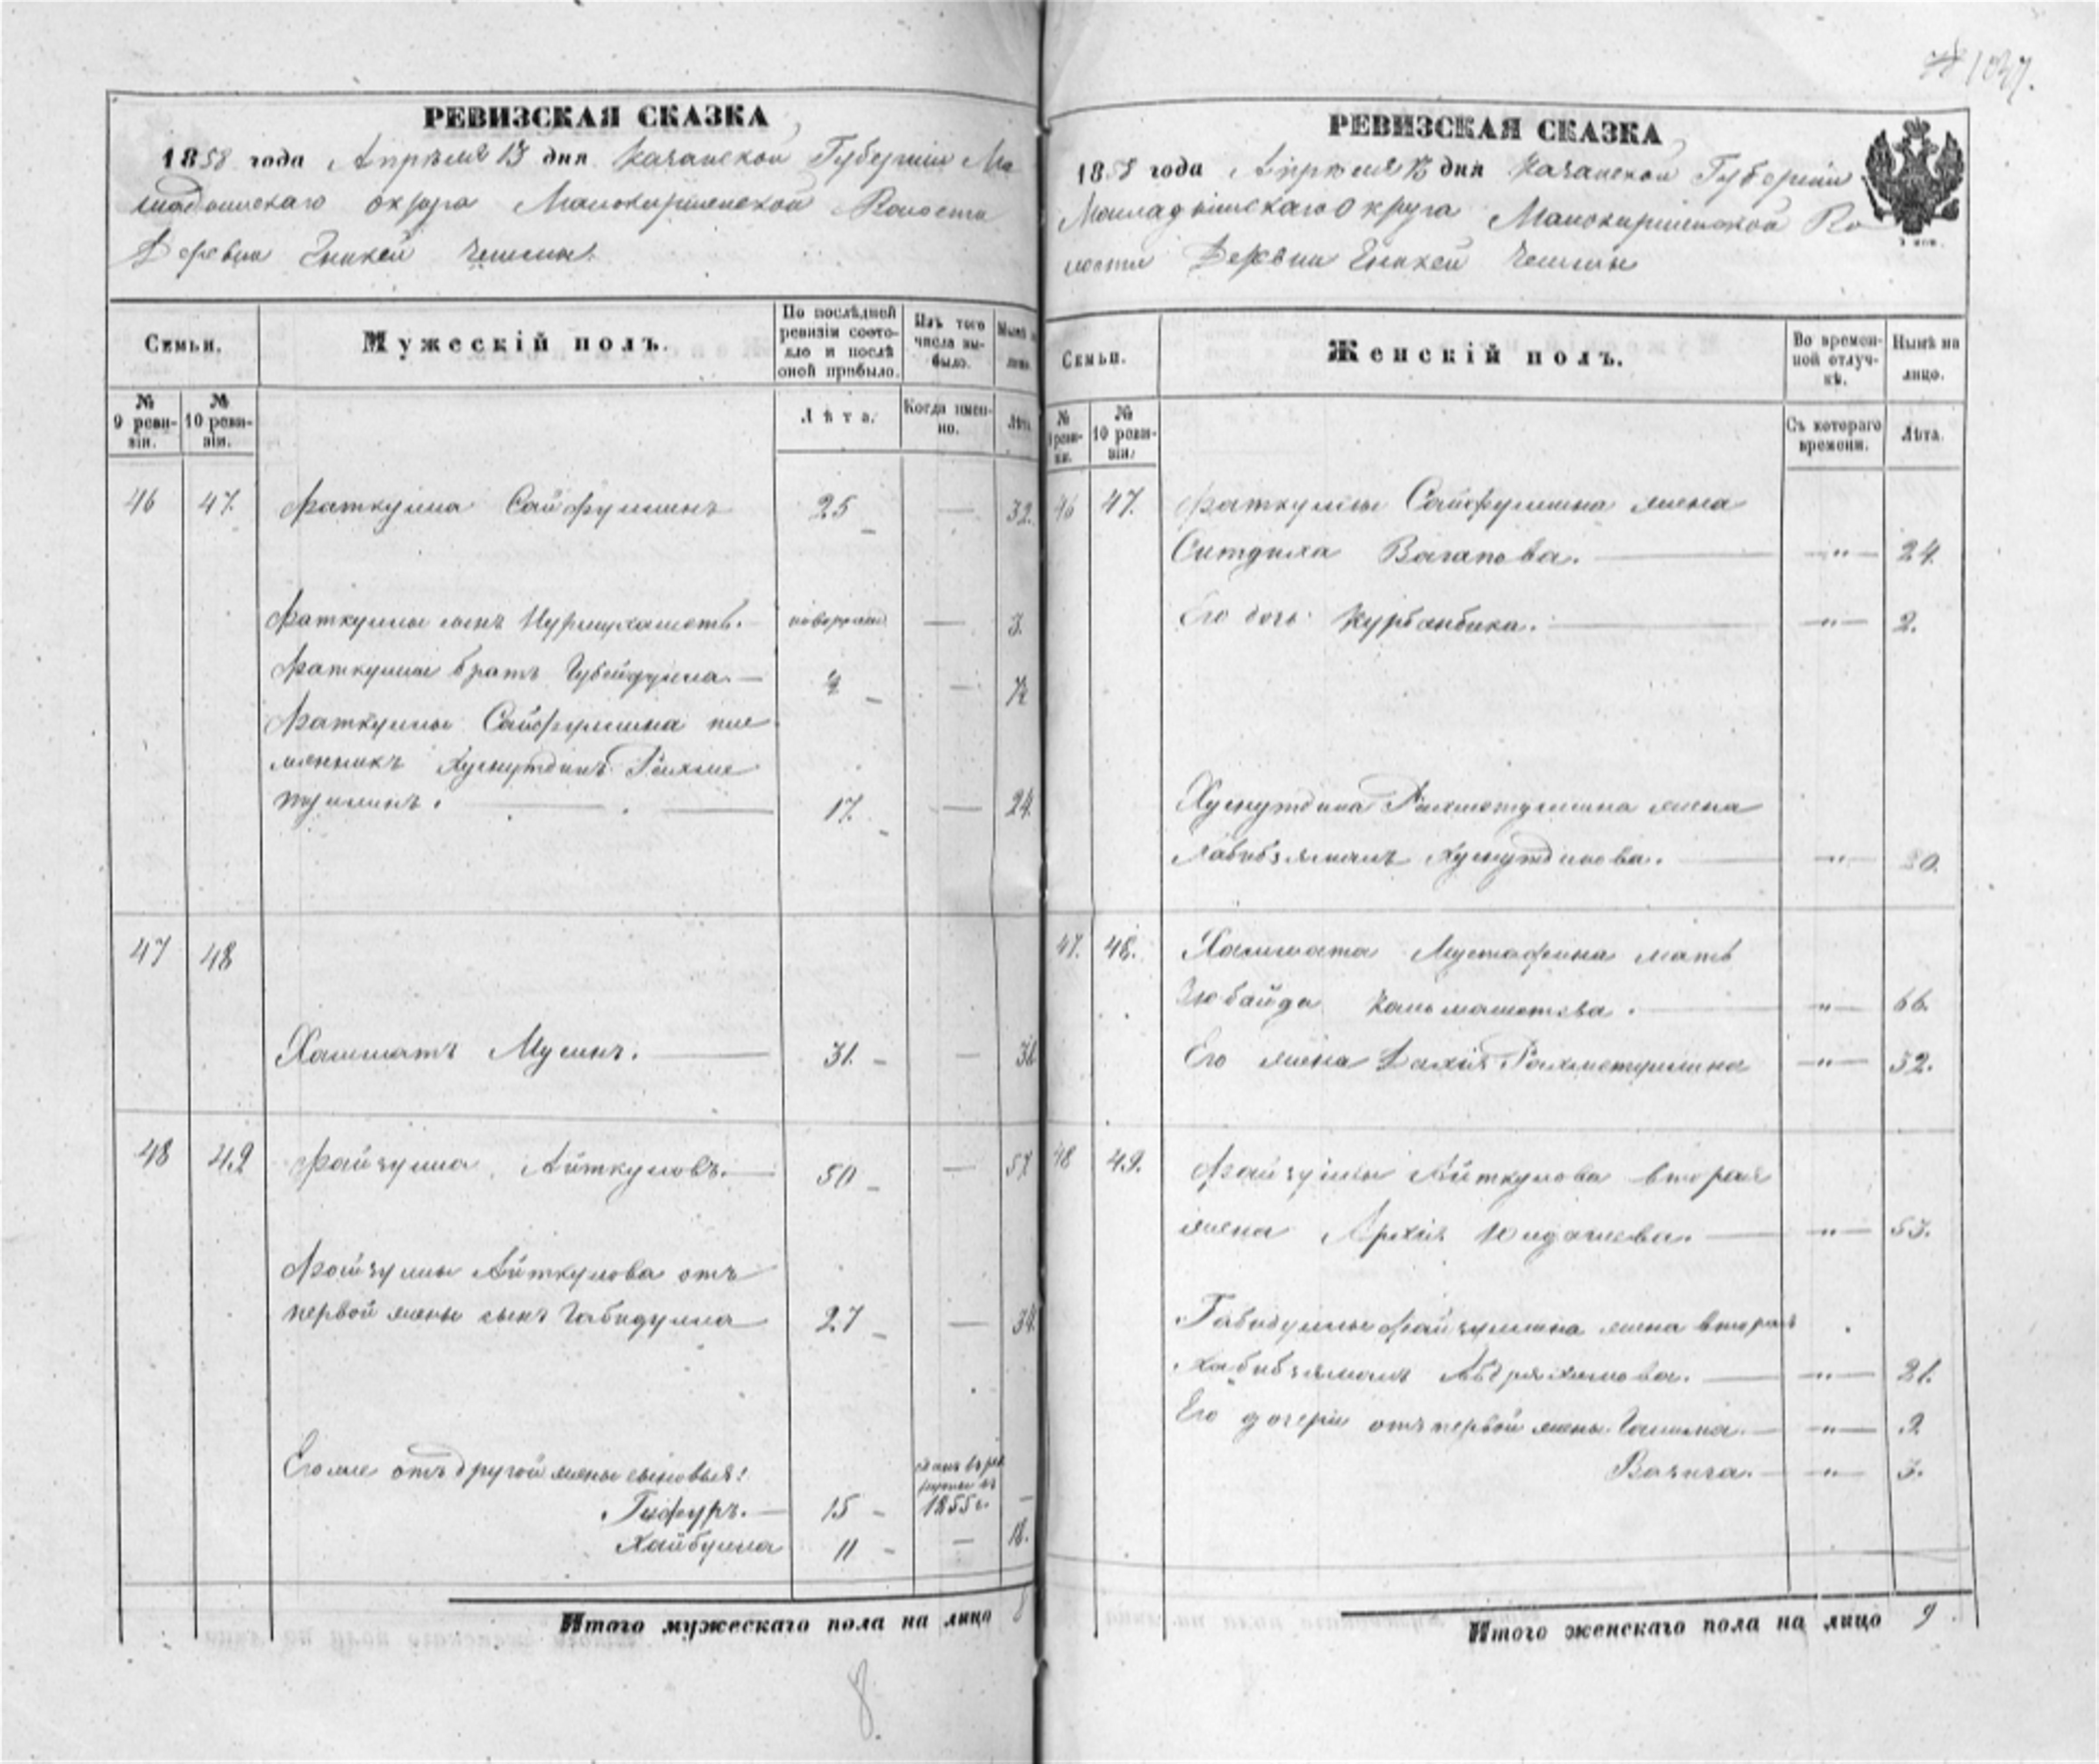 1037.
РЕВИЗСКАЯ СКАЗКА
1858 года Апреля 13 дня Казанской Губернии Ма
мадышскаго округа Малокирменской Волости
Деревни Енакей Чешмы.
Семьи.
Мужескій полъ.
По послѣдней ревизіи состояло и послѣ оной прибыло.
Изъ того числа выбыло.
Нынѣ на лицо.
№ 9 ревизіи.
№ 10 ревизіи.
Лѣта.
Когда именно.
Лѣта.
46 47. Фаткулла Сайфуллинъ 25 — 32.
Фаткуллы сынъ Нурмухаметъ. — 3.
Фаткуллы брат Губейдулла. —
Фаткуллы Сайфуллина пле
мянникъ Хуснутдинъ Рахме
туллинъ. 17. — 24.
47 48
Хамматъ Мусинъ. 31. —
48 49 Файзулла Айткуловъ. 50 — 57
Файзуллы Айткулова отъ
первой жены сынъ Габидулла 27 — 34.
Его же отъ другой жены сыновья:
Гафуръ. 15 1855 г. —
Хайбулла 11 — 18.
Итого мужескаго пола на лицо 8
8.
РЕВИЗСКАЯ СКАЗКА
1858 года Апреля 13 дня Казанской Губернии
Мамадышскаго Округа Малокирменской Во
лости Деревни Енакей Чешмы
Семьи.
Женскій полъ.
Во временной отлучкѣ.
Нынѣ на лицо.
№ 9 ревизіи.
№ 10 ревизіи.
Съ котораго времени.
Лѣта.
46 47. Фаткуллы Сайфуллина жена
Ситдика Вагапова. — " — 24.
Его дочь Курбанбика. — " — 2.
Хуснутдина Рахметуллина жена
Хабибзямалъ Хуснутдинова. — " —
47. 48. Хаммата Мустафина мать
Зюбайда Кальмаметева. — " — 66.
Его жена Бахія Рахметуллина — " — 32.
48 49. Файзуллы Айткулова вторая
жена — " — 53.
Габидуллы Файзуллина жена вторая
Хабибзямалъ — " — 21.
Его дочери отъ первой жены Галима — " — 9
Вазиха. — " — 3.
Итого женскаго пола на лицо 9